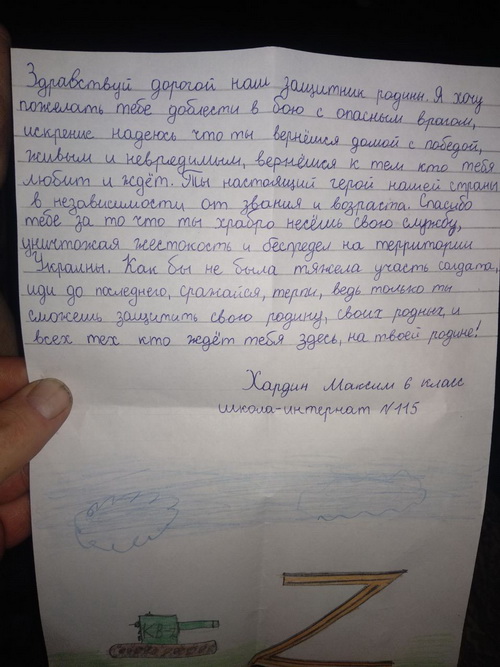 Здравствуй дорогой наш защитник родины. Я хочу
пожелать тебе доблести в бою с опасным врагом,
искренне надеюсь что ты вернёшся домой с победой,
живым и невредимым, вернёшся к тем кто тебя
любит и ждёт. Ты настоящий герой нашей страны
в независимости от звания и возраста. Спасибо
тебе за то что ты храбро несёшь свою службу,
уничтожая жестокость и беспредел на территории
Украины. Как бы не была тяжела участь солдата,
иди до последнего, сражайся, терпи, ведь только ты
сможешь защитить свою родину, своих родных, и
всех тех кто ждёт тебя здесь, на твоей родине!
Хардин Максим 6 класс
школа-интернат №115
КВ-2
Z